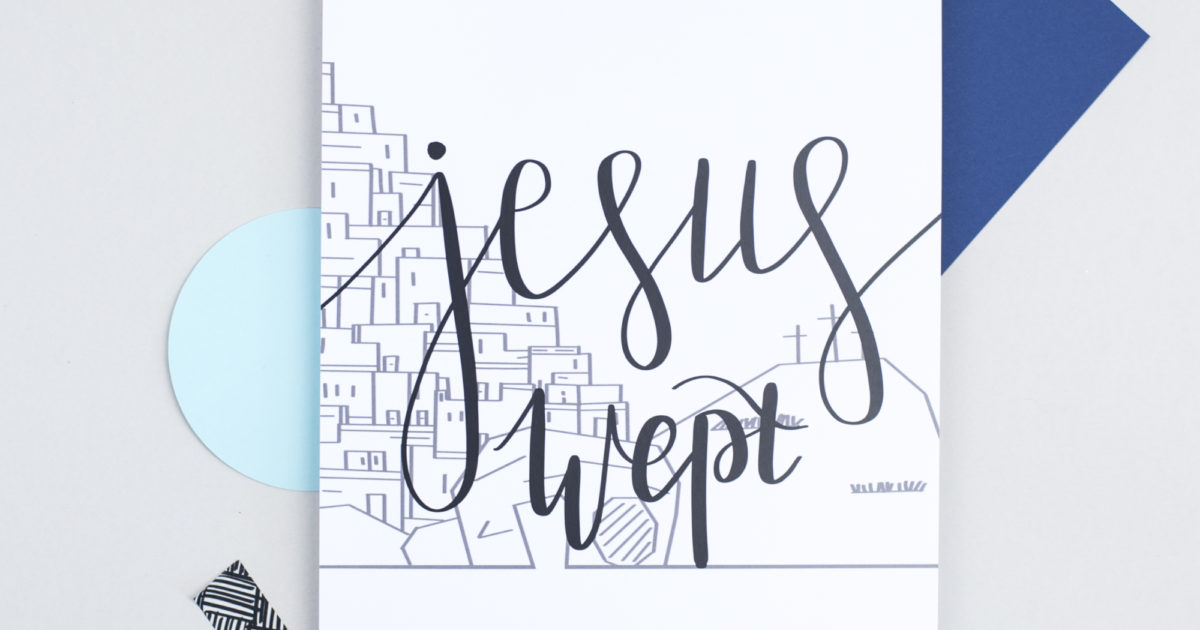 jesus
wept